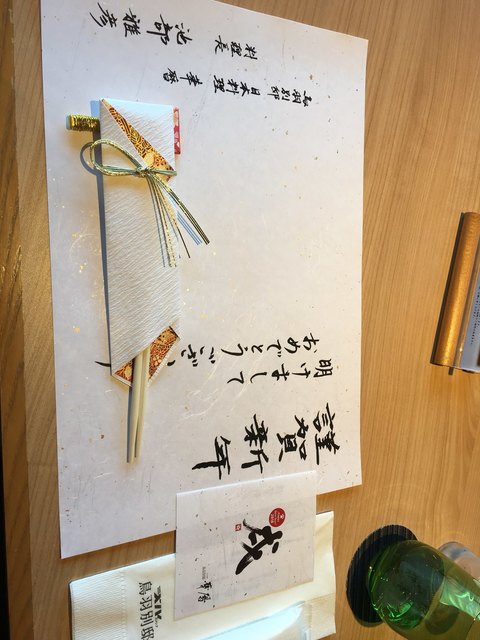 謹賀新年
明けまして
おめでとう
ござい
鳥羽別邸 日本料理 華暦
料理長 池部 雅彦
戌
華暦
鳥羽別邸